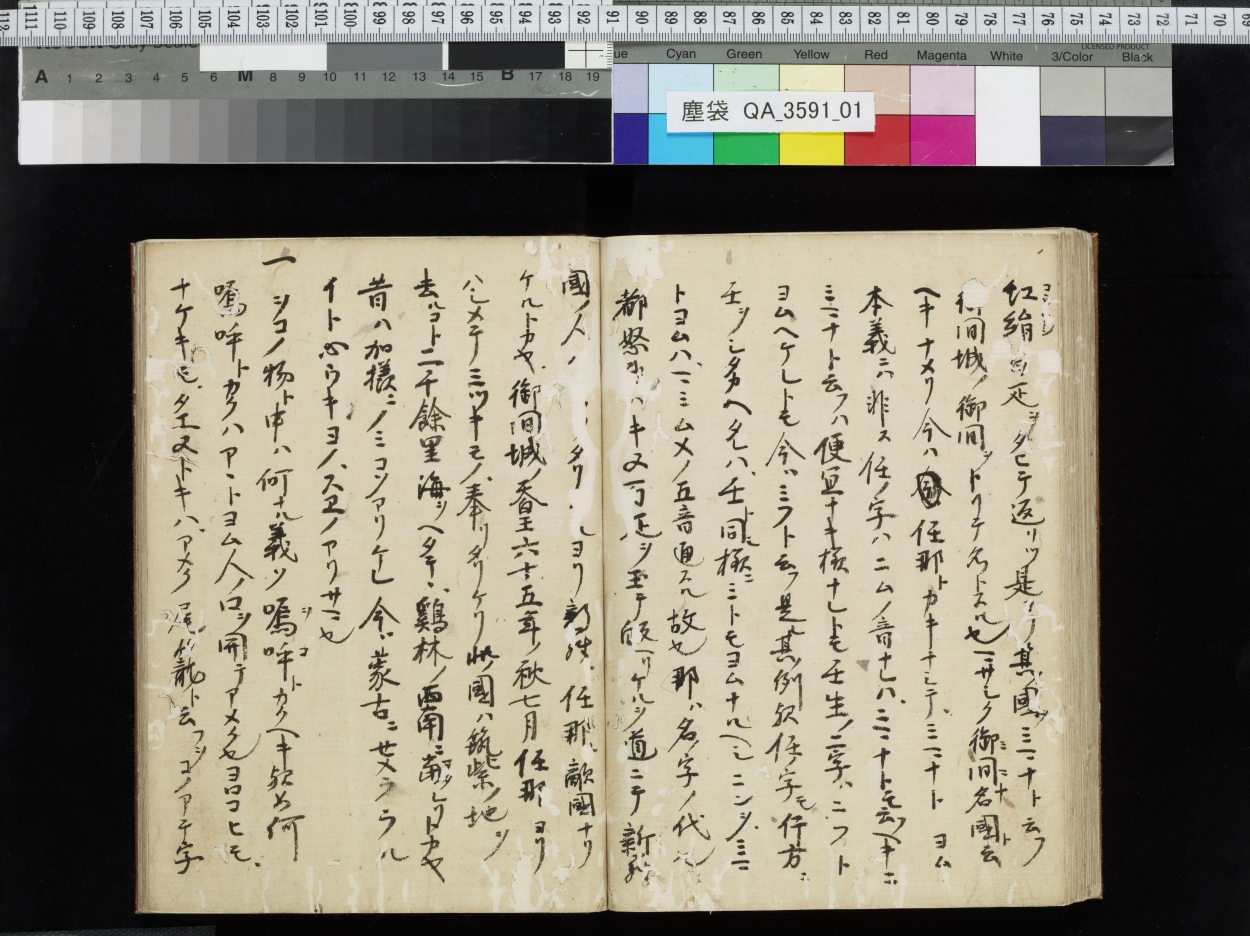 塵袋 QA_3591_01
A 1 2 3 4 5 6 M 8 9 10 11 12 13 14 15 B 17 18 19
Cyan Green Yellow Red Magenta White 3/Color Black
LICENSED PRODUCT
紅絹 疋ヲタヒテ返リツ是ヨリ其國ヲミマナト云フ
御間城ノ御間ヲトリテ名トスル也 御間名國云
ヘキナメリ今ハ 任那トカキナシテミマナトヨム
本義ニハ非ス任ノ字ハニムノ音ナレハミマナトモ云ヘキニ
ミマナト云フハ便宜ナキ様ナレトモ壬生ノ二字ハニフト
ヨムヘケレトモ今ハミフト云フ是其例歟任字モ行方ニ
壬ヲシタカヘタレハ壬同様ニミトモヨムナルヘシニンヲミニ
トヨムハマミムメノ五音通スル故也那ハ名ノ字ノ代ル
都怒 ハキヌ百疋ヲ玉テ皈ヘリケルヲ道ニテ新羅
國ノ人 ヨリ新羅任那敵國ナリ
ケルトカヤ御間城天皇六十五年ノ秋七月任那ヨリ
ハシメテミツキモノ奉リタリケリ此國ハ筑紫ノ地ヲ
去ルコト二千餘里海ヲヘタテ鷄林ノ西南ニ トカヤ
昔ハ加様ニノミコソアリケレ今ハ蒙古ニせメラル
イト心ウキヨノスヱノアリサマ也
一 シコノ物ト申ハ何ナル義ソ嗚呼トカクヘキ歟如何
嗚呼トカクハアヽトヨム人ノ口ヲ開テアメク也ヨロコヒモ
ナケキモタエヌトキハアメク 云フシコノアテ字